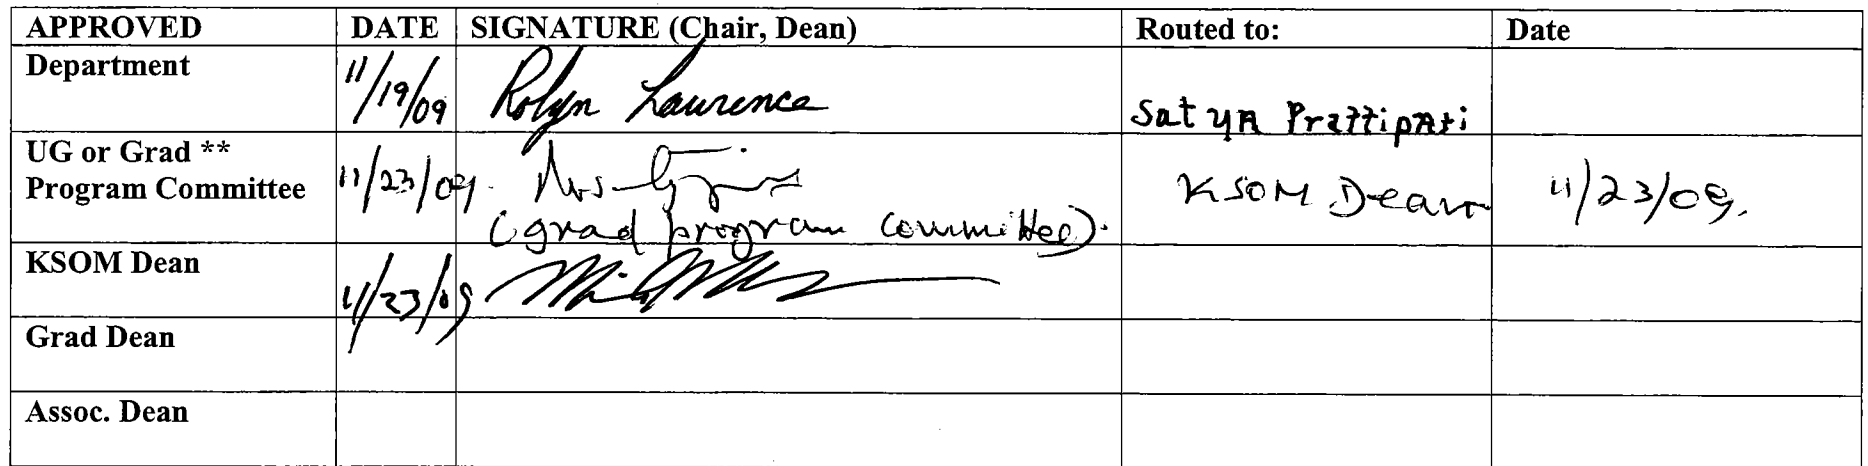 APPROVED DATE SIGNATURE (Chair, Dean) Routed to: Date
Department 11/19/09 Robyn Lawrence Satya Prattipati
UG or Grad **
Program Committee 11/23/09. KSOM Dean 11/23/09.
(grad program committee).
KSOM Dean 11/23/09
Grad Dean
Assoc. Dean